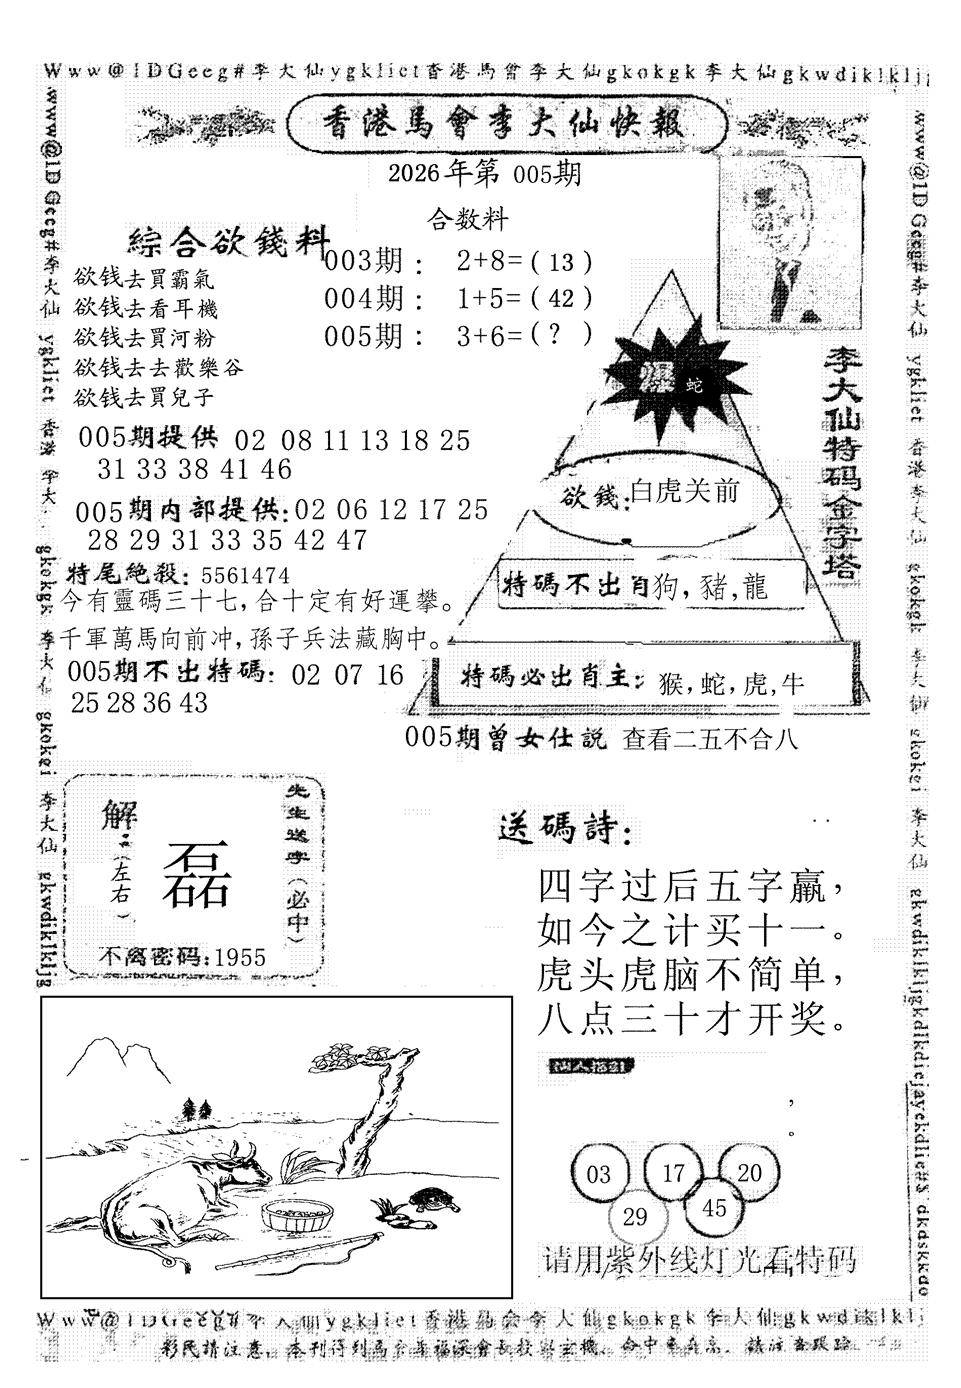 Www@1DGeeg#李大仙ygkliet香港馬會李大仙gkokgk李大仙gkwdiklkljg
香港馬會李大仙快報
2026年第 005期
合数料
綜合欲錢料
003期： 2+8=(13)
004期： 1+5=(42)
005期： 3+6=(？)
欲钱去買霸氣
欲钱去看耳機
欲钱去買河粉
欲钱去去歡樂谷
欲钱去買兒子
爆 蛇
李大仙特码金字塔
005期提供 02 08 11 13 18 25
31 33 38 41 46
欲錢:白虎关前
005期内部提供:02 06 12 17 25
28 29 31 33 35 42 47
特尾絶殺: 5561474
特碼不出肖狗,豬,龍
今有靈碼三十七,合十定有好運攀。
千軍萬馬向前冲,孫子兵法藏胸中。
005期不出特碼: 02 07 16
25 28 36 43
特碼必出肖主: 猴,蛇,虎,牛
005期曾女仕説 查看二五不合八
先生送字(必中)
解:
(左右)
磊
不离密码:1955
送碼詩:
四字过后五字赢，
如今之计买十一。
虎头虎脑不简单，
八点三十才开奖。
，
。
03 17 20
29 45
请用紫外线灯光看特码
www@1DGeeg#李大仙 ygkliet 香港 李大 gkokgk 李大仙 gkokei 李大仙 gkwdiklkljg
www@1DGeeg#李大仙 ygkliet 香港李大仙 gkokgk 李大仙 gkokei 李大仙 gkwdiklkljgkdlkdiejayekdlie#$dkdskkdo
Www@1DGeeg#李大仙ygkliet香港馬会李大仙gkokgk李大仙gkwdiklklj
彩民請注意，本刊得到馬会